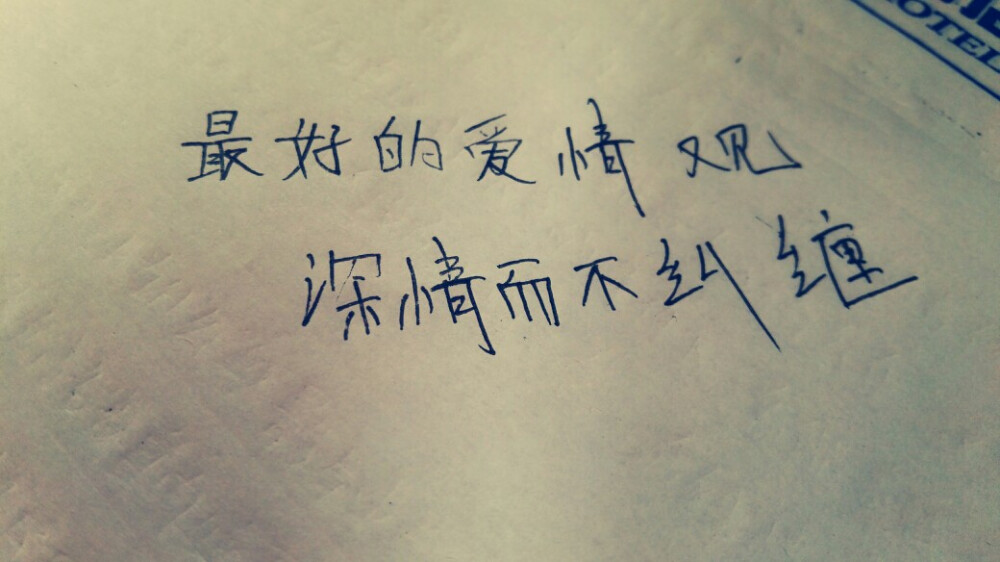 最好的爱情观
深情而不纠缠
HOTEL